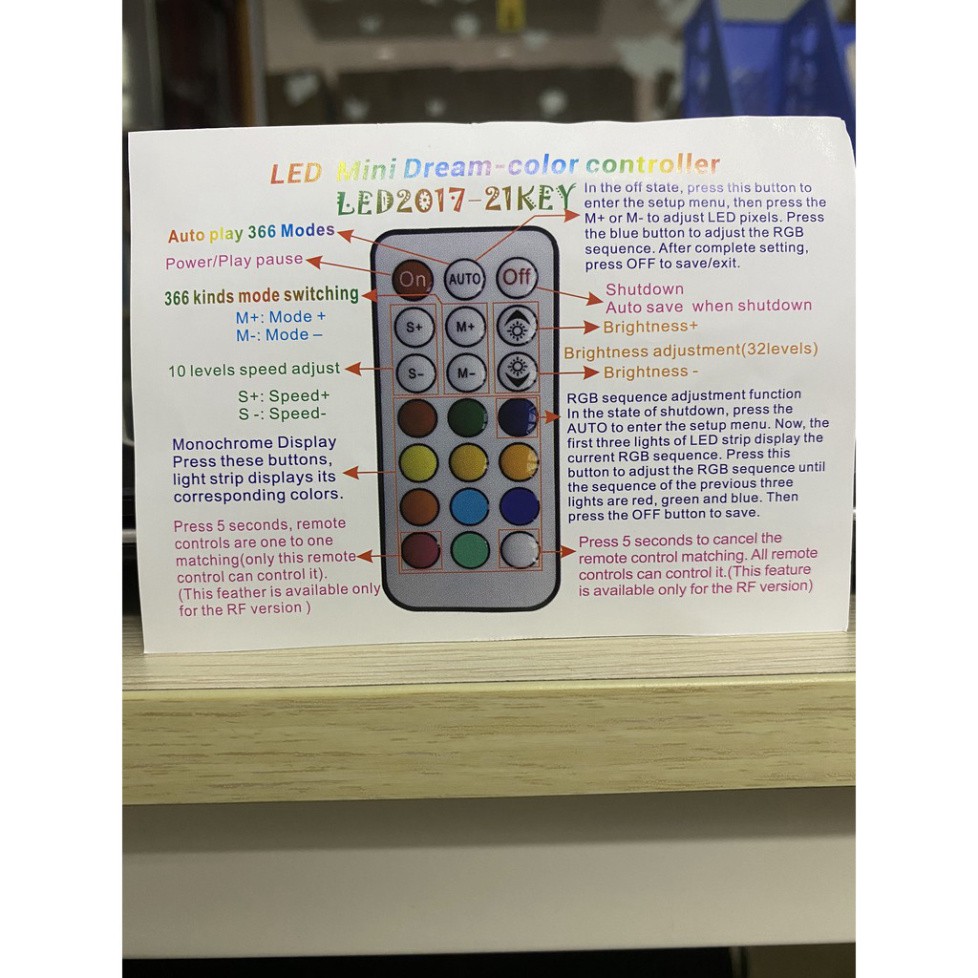 LED Mini Dream-color controller
LED2017-21KEY
In the off state, press this button to
enter the setup menu, then press the
M+ or M- to adjust LED pixels. Press
the blue button to adjust the RGB
sequence. After complete setting,
press OFF to save/exit.
Auto play 366 Modes
Power/Play pause
366 kinds mode switching
M+: Mode +
M-: Mode –
10 levels speed adjust
S+: Speed+
S -: Speed-
Monochrome Display
Press these buttons,
light strip displays its
corresponding colors.
Press 5 seconds, remote
controls are one to one
matching(only this remote
control can control it).
(This feather is available only
for the RF version )
On
AUTO
Off
S+
M+
S-
M-
Shutdown
Auto save when shutdown
Brightness+
Brightness adjustment(32levels)
Brightness -
RGB sequence adjustment function
In the state of shutdown, press the
AUTO to enter the setup menu. Now, the
first three lights of LED strip display the
current RGB sequence. Press this
button to adjust the RGB sequence until
the sequence of the previous three
lights are red, green and blue. Then
press the OFF button to save.
Press 5 seconds to cancel the
remote control matching. All remote
controls can control it.(This feature
is available only for the RF version)